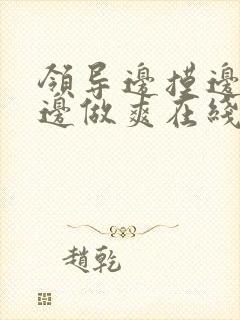 領导邊摸邊
邊做爽在綫
趙乾